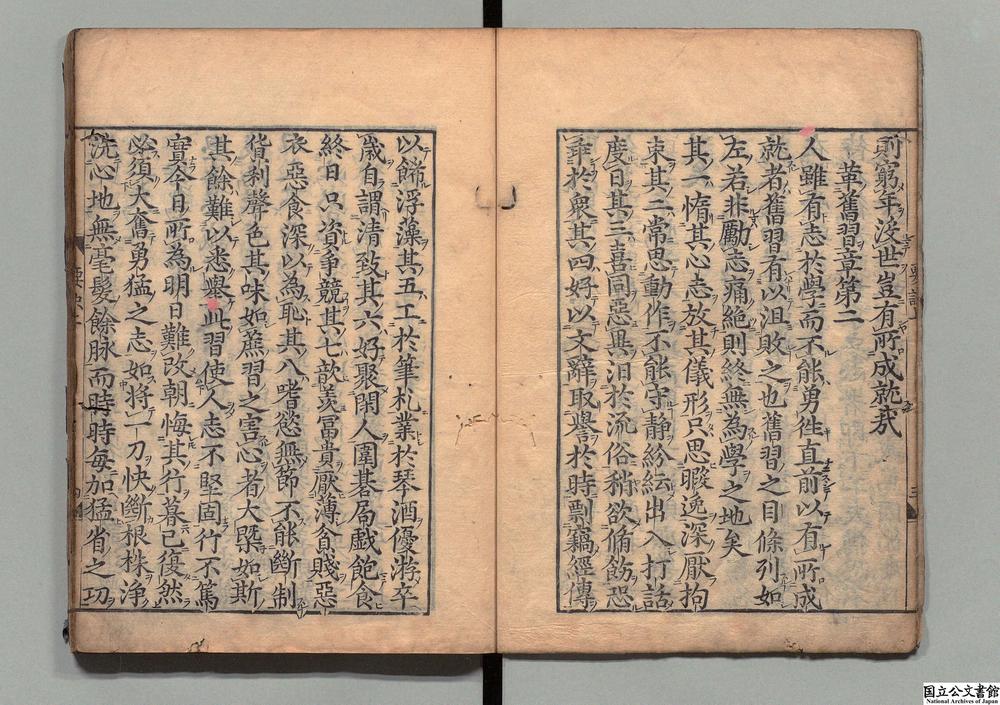 前窮年沒世豈有所成就哉
革舊習章第二
人雖有志於學而不能勇徃直前以有所成
就者舊習有以沮敗之也舊習之目條列如
左若非勵志痛絶則終無為學之地矣
其一惰其心志放其儀形只思暇逸深厭拘
束其二常思動作不能守静紛紜出入打話
度日其三喜同惡異汨於流俗稍欲脩飭恐
乖於衆其四好以文辭取譽於時剽竊經傳
以餙浮藻其五工於筆札業於琴酒優游卒
歳自謂清致其六好聚閑人圍碁局戯飽食
終日只資爭競其七歆羨冨貴厭薄貧賤惡
衣惡食深以為恥其八嗜慾無節不能斷制
貨利聲色其味如蔗習之害心者大槩如斯
其餘難以悉舉此習使人志不堅固行不篤
實今日所為明日難改朝悔其行暮已復然
必須大奮勇猛之志如將一刀快斷根株淨
洗心地無毫髮餘脉而時時毎加猛省之功
国立公文書館
National Archives of Japan